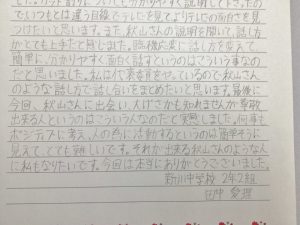 でいつもとは違う目線でテレビを見てよりテレビの面白さを見
つけたいと思います。また、秋山さんの説明を聞いて、話し方
がとても上手だと感じました。臨機応変に話し方を変えて、
簡単に、分かりやすく面白く話すというのはこういう事なの
だと思いました。私は代表委員をやっているので秋山さん
のような話し方で話し合いをまとめたいと思います。最後に
今回、秋山さんに出会い、大げさかも知れませんが尊敬
出来る人というのはこういう人なのだと実感しました。何事も
ポジティブに考え、人の為に活動するというのは簡単そうに
見えて、とても難しいです。それが出来る秋山さんのような人
に私もなりたいです。今回は本当にありがとうございました。
中学校 2年2組
田中 愛理